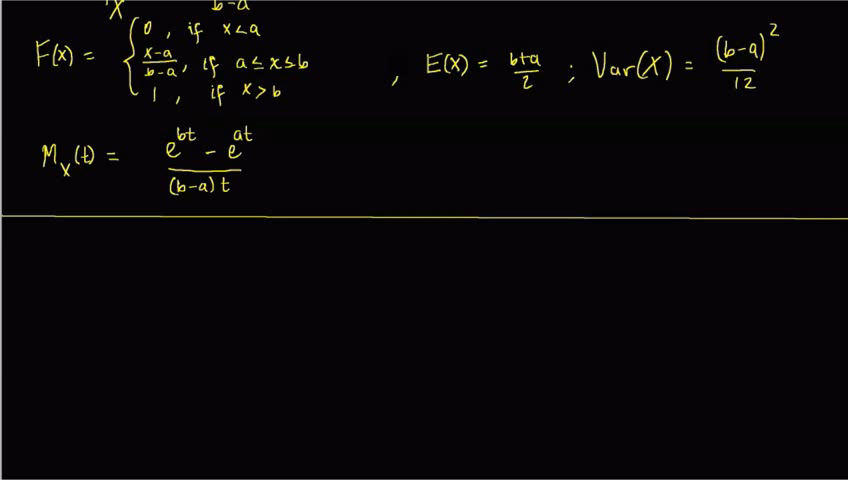 X b-a
F(x) = { 0, if x<a
x-a/b-a, if a≤x≤b
1, if x>b
, E(X) = b+a/2 ; Var(X) = (b-a)²/12
M_X(t) = e^bt - e^at / (b-a)t